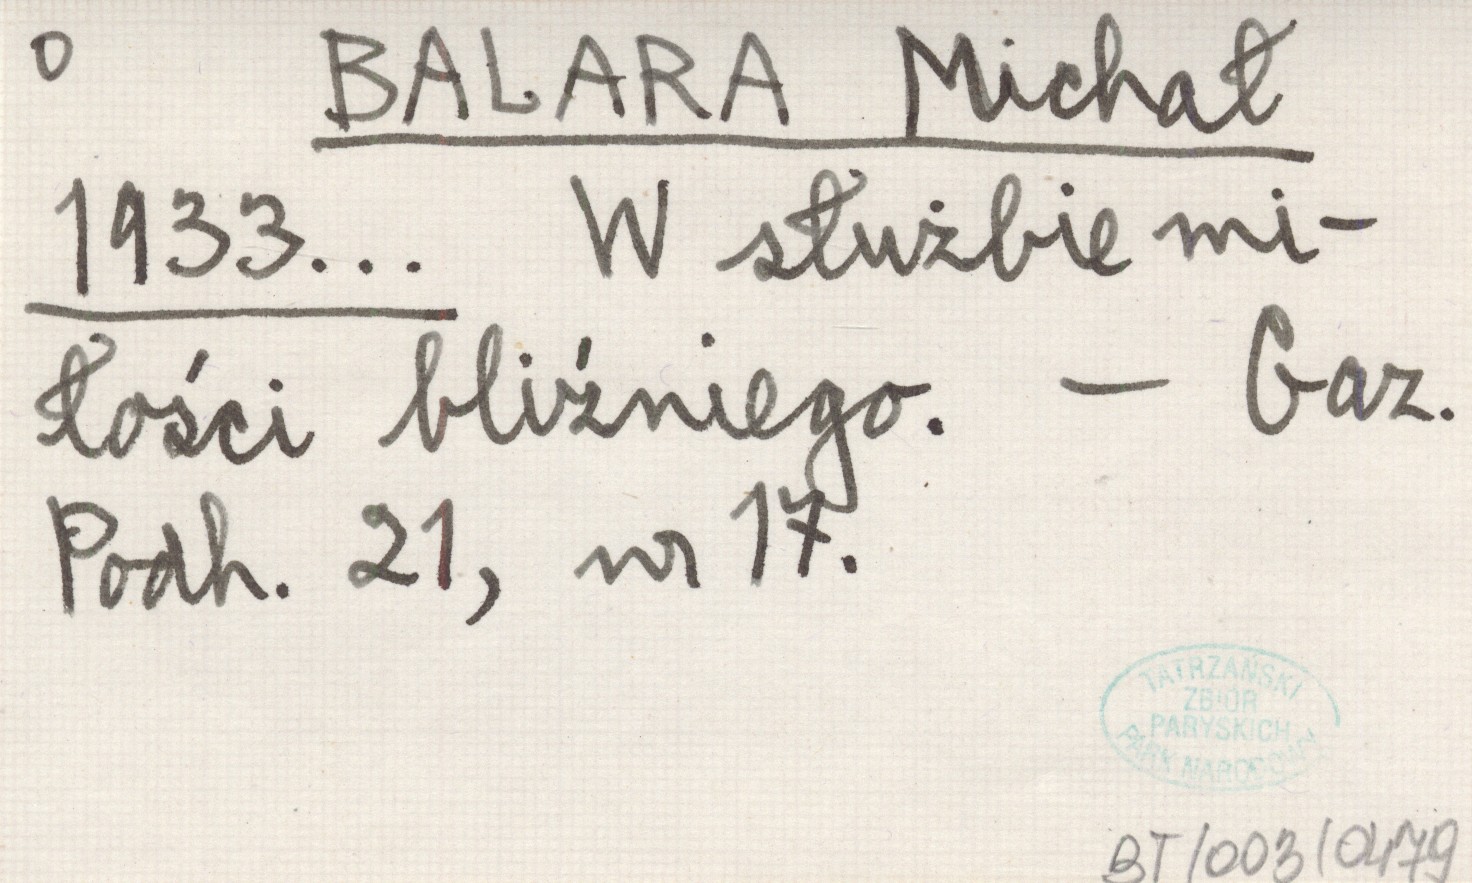 o BALARA Michał
1933... W służbie mi-
łości bliźniego. — Gaz.
Podh. 21, nr 17.
TATRZAŃSKI
ZBIÓR
PARYSKICH
PARK NARODOWY
BT/003/0479